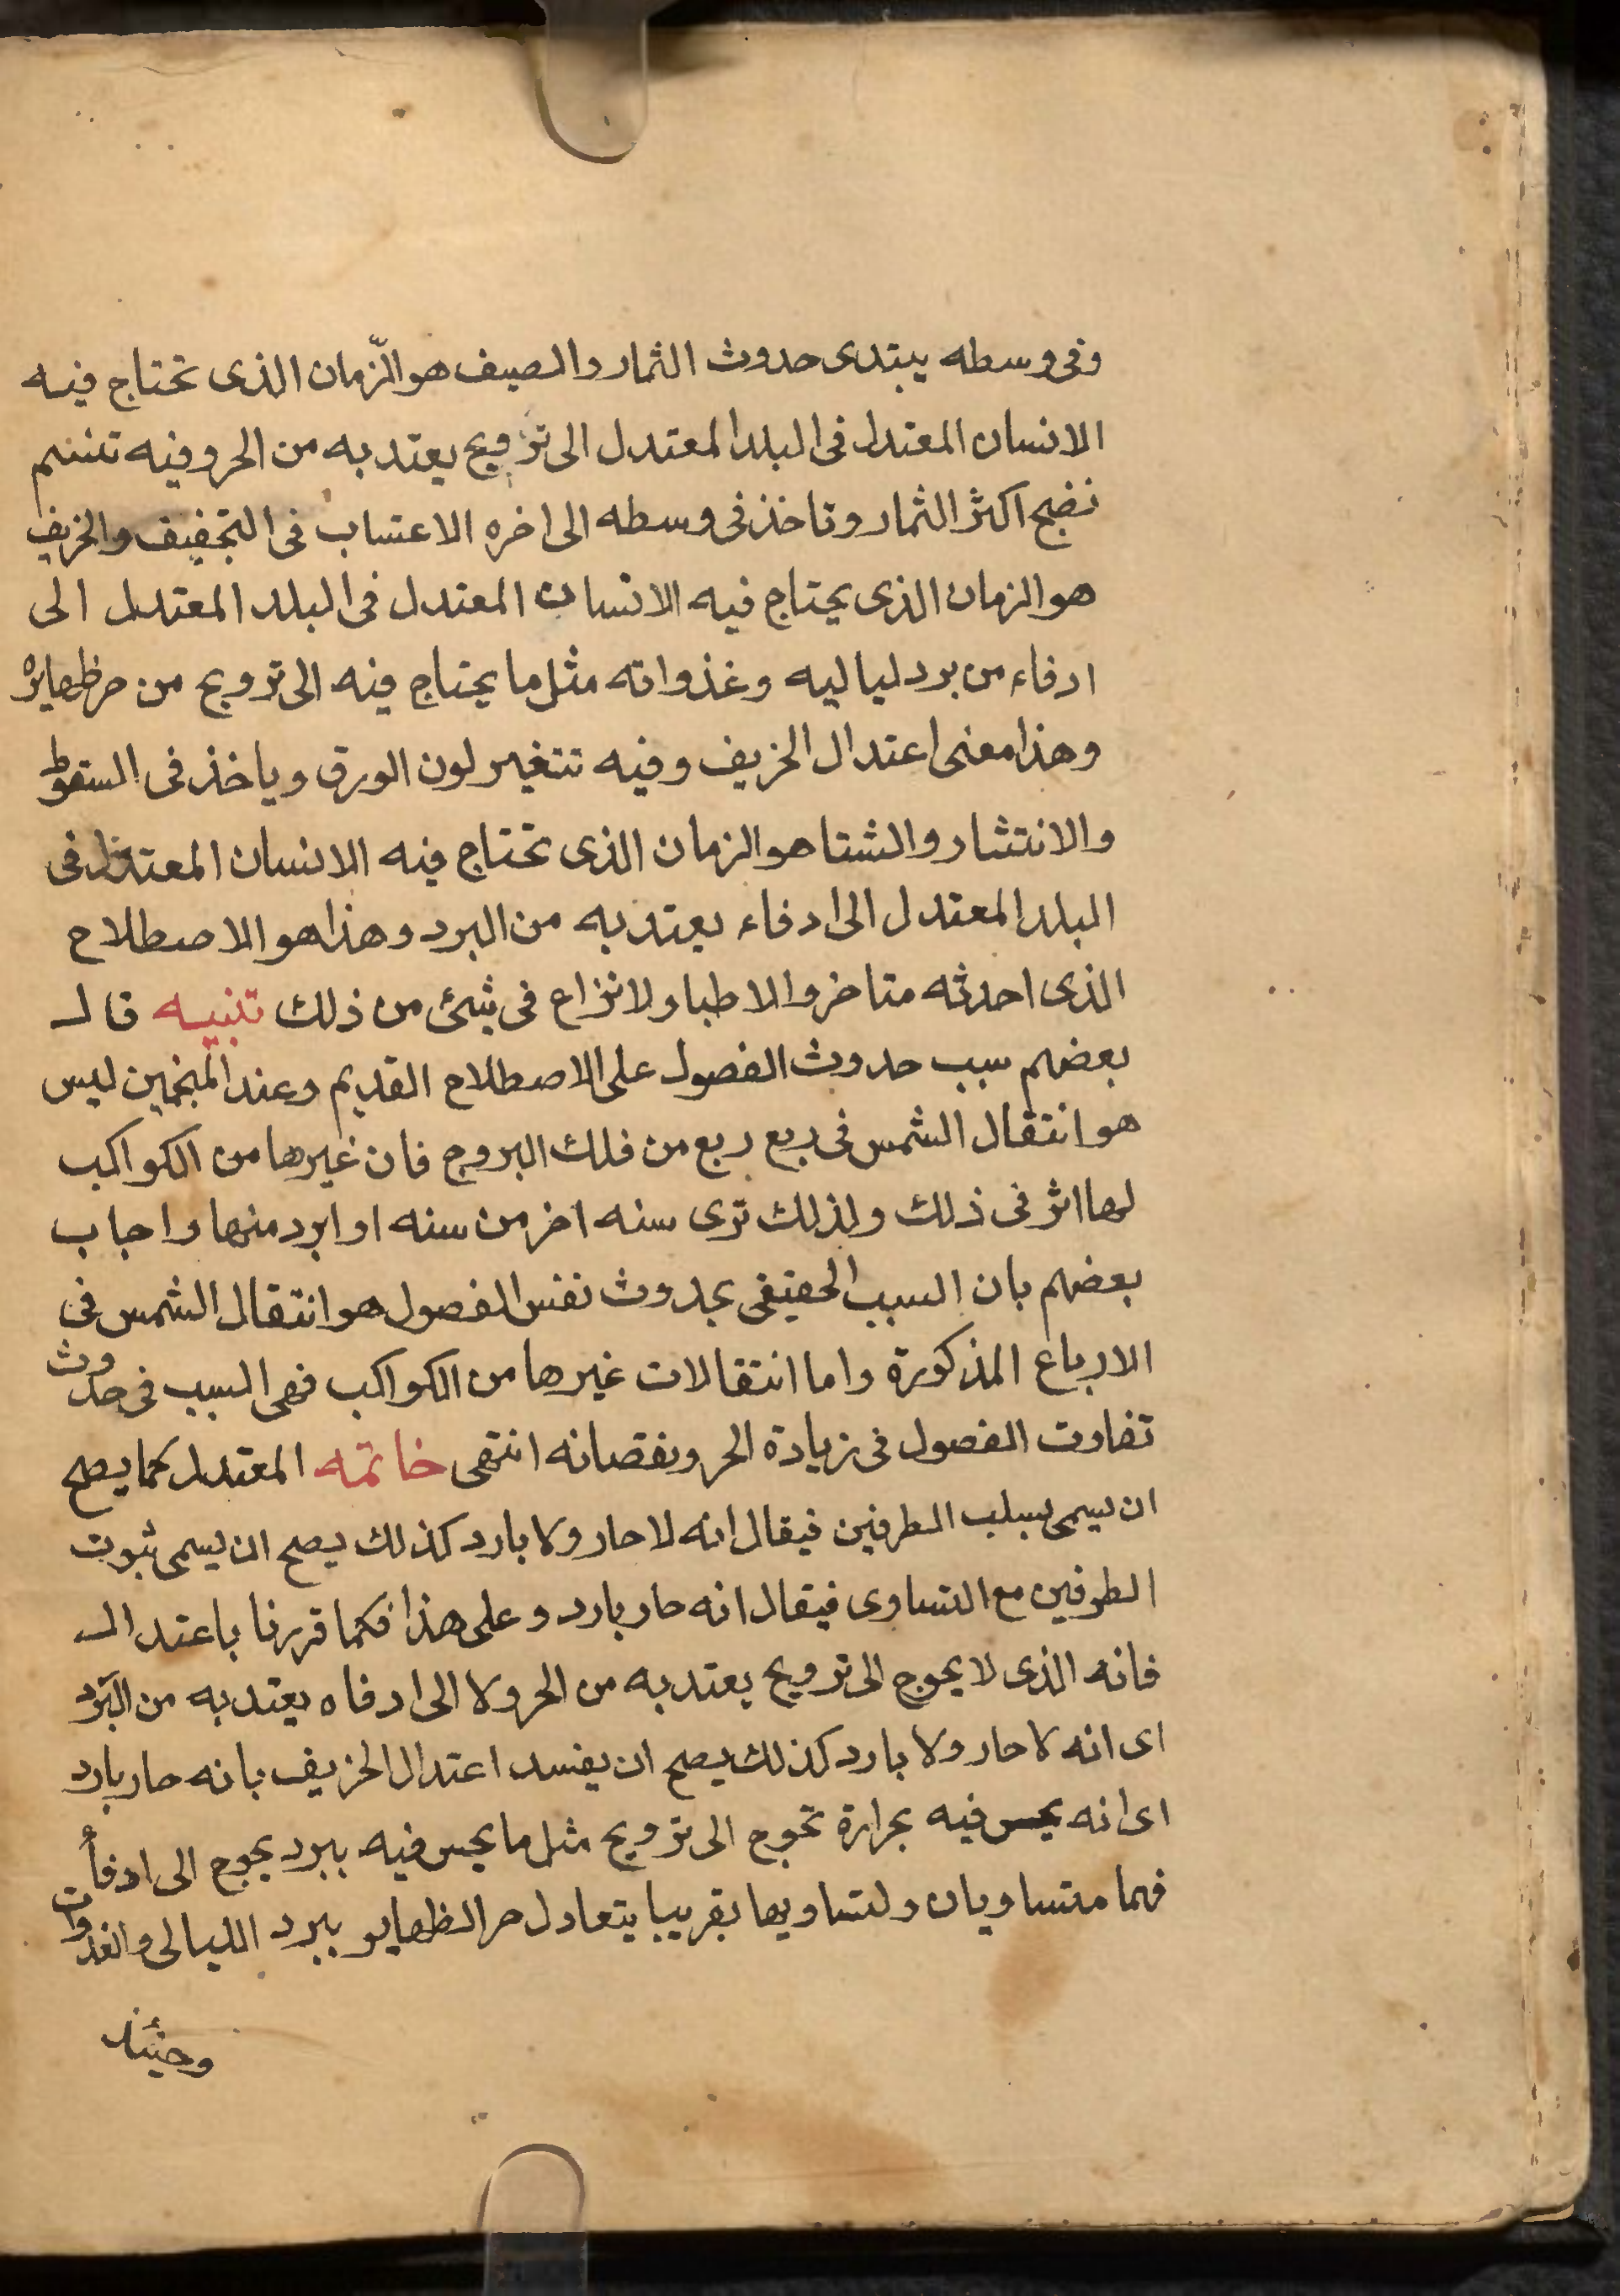 وفى وسطه يبتدى حدوث الثمار والصيف هو الزّمان الذى تحتاج فيه
الانسان المعتدل فى البلد المعتدل الى ترويح يعتد به من الحر وفيه تنسم
نضج اكثر الثمار وتاخذ فى وسطه الى اخره الاعشاب فى التجفيف والخريف
هو الزمان الذى يحتاج فيه الانسان المعتدل فى البلد المعتدل الى
ادفاء من برد لياليه وغذواته مثل ما يحتاج فيه الى ترويح من حر ظهايره
وهذا معنى اعتدال الخريف وفيه تتغير لون الورق وياخذ فى السقوط
والانتثار والشتا هو الزمان الذى تحتاج فيه الانسان المعتدل فى
البلد المعتدل الى ادفاء يعتد به من البرد وهذا هو الاصطلاح
الذى احدثه متاخروا الاطبا ولا نزاع فى شئ من ذلك تنبيه قال
بعضهم سبب حدوث الفصول على الاصطلاح القديم وعند المنجمين ليس
هو انتقال الشمس فى ربع ربع من فلك البروج فان غيرها من الكواكب
لها اثر فى ذلك ولذلك ترى سنه احر من سنه او ابرد منها واجاب
بعضهم بان السبب الحقيقى بحدوث نفس الفصول هو انتقال الشمس فى
الارباع المذكورة واما انتقالات غيرها من الكواكب فهى السبب فى حدوث
تفاوت الفصول فى زيادة الحر ونقصانه انتهى خاتمه المعتدل كما يصح
ان يسمى بسلب الطرفين فيقال انه لا حار ولا بارد كذلك يصح ان يسمى ثبوت
الطرفين مع التساوى فيقال انه حار بارد وعلى هذا فكما قررنا باعتدال
فانه الذى لا يحوج الى ترويح يعتد به من الحر ولا الى ادفاه يعتد به من البرد
اى انه لا حار ولا بارد كذلك يصح ان يفسد اعتدال الخريف بانه حار بارد
اى انه يحس فيه بحرارة تحوج الى ترويح مثل ما يحس فيه ببرد يحوج الى ادفأ
فهما متساويان ولتساويها تقريبا يتعادل حر الظهاير ببرد الليالى والغدوات
وحينئذ